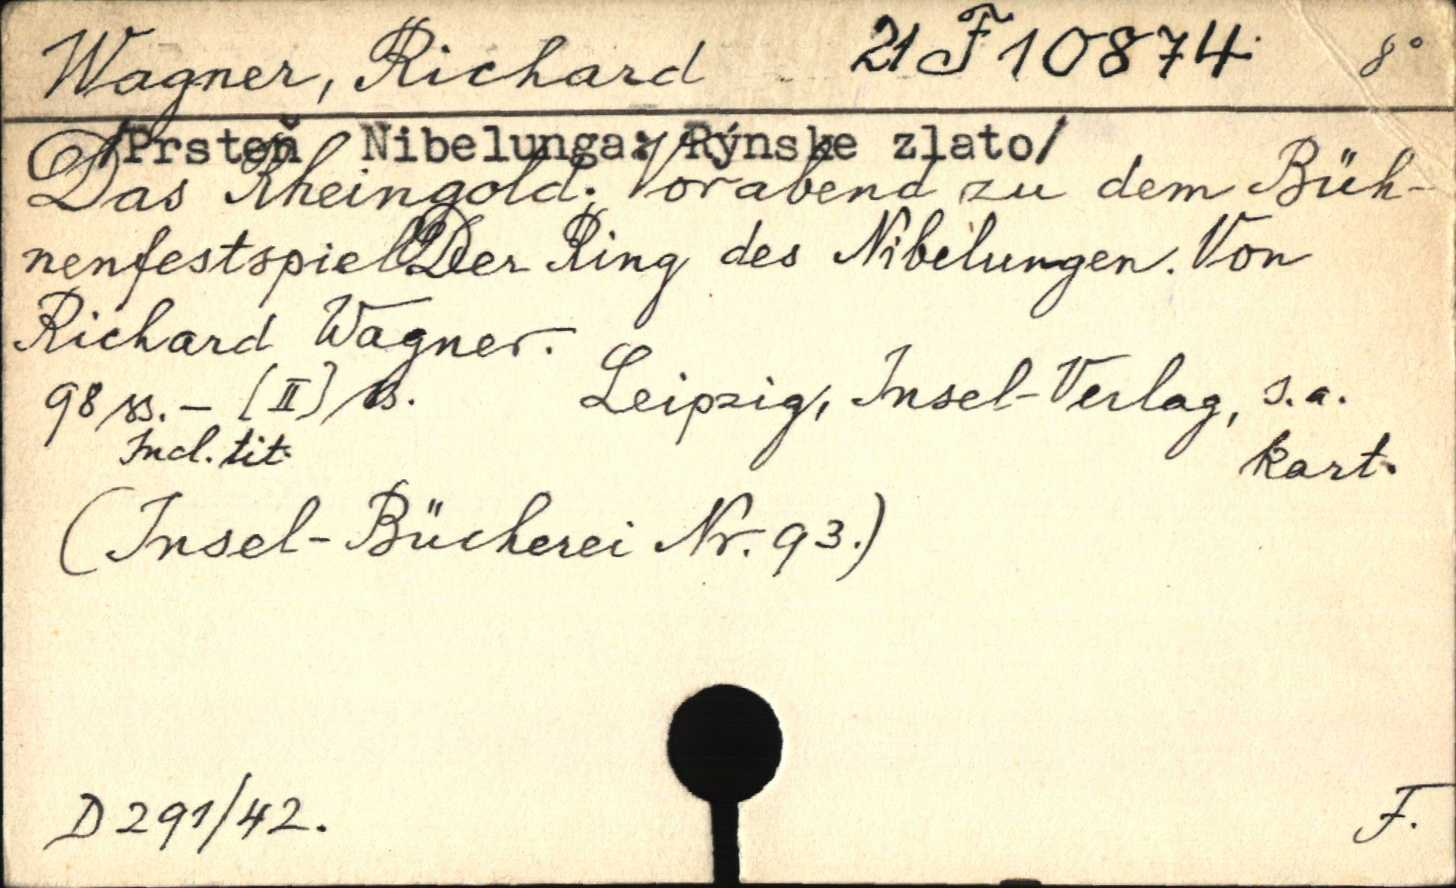 Wagner, Richard 21 F 10874 8°
/Prsteň Nibelunga: Rýnske zlato/
Das Rheingold. Vorabend zu dem Büh-
nenfestspiel Der Ring des Nibelungen. Von
Richard Wagner.
98 ss. - [II] s. Leipzig, Insel-Verlag, s.a.
Incl. tit. kart.
(Insel-Bücherei Nr. 93.)
D 291/42. F.